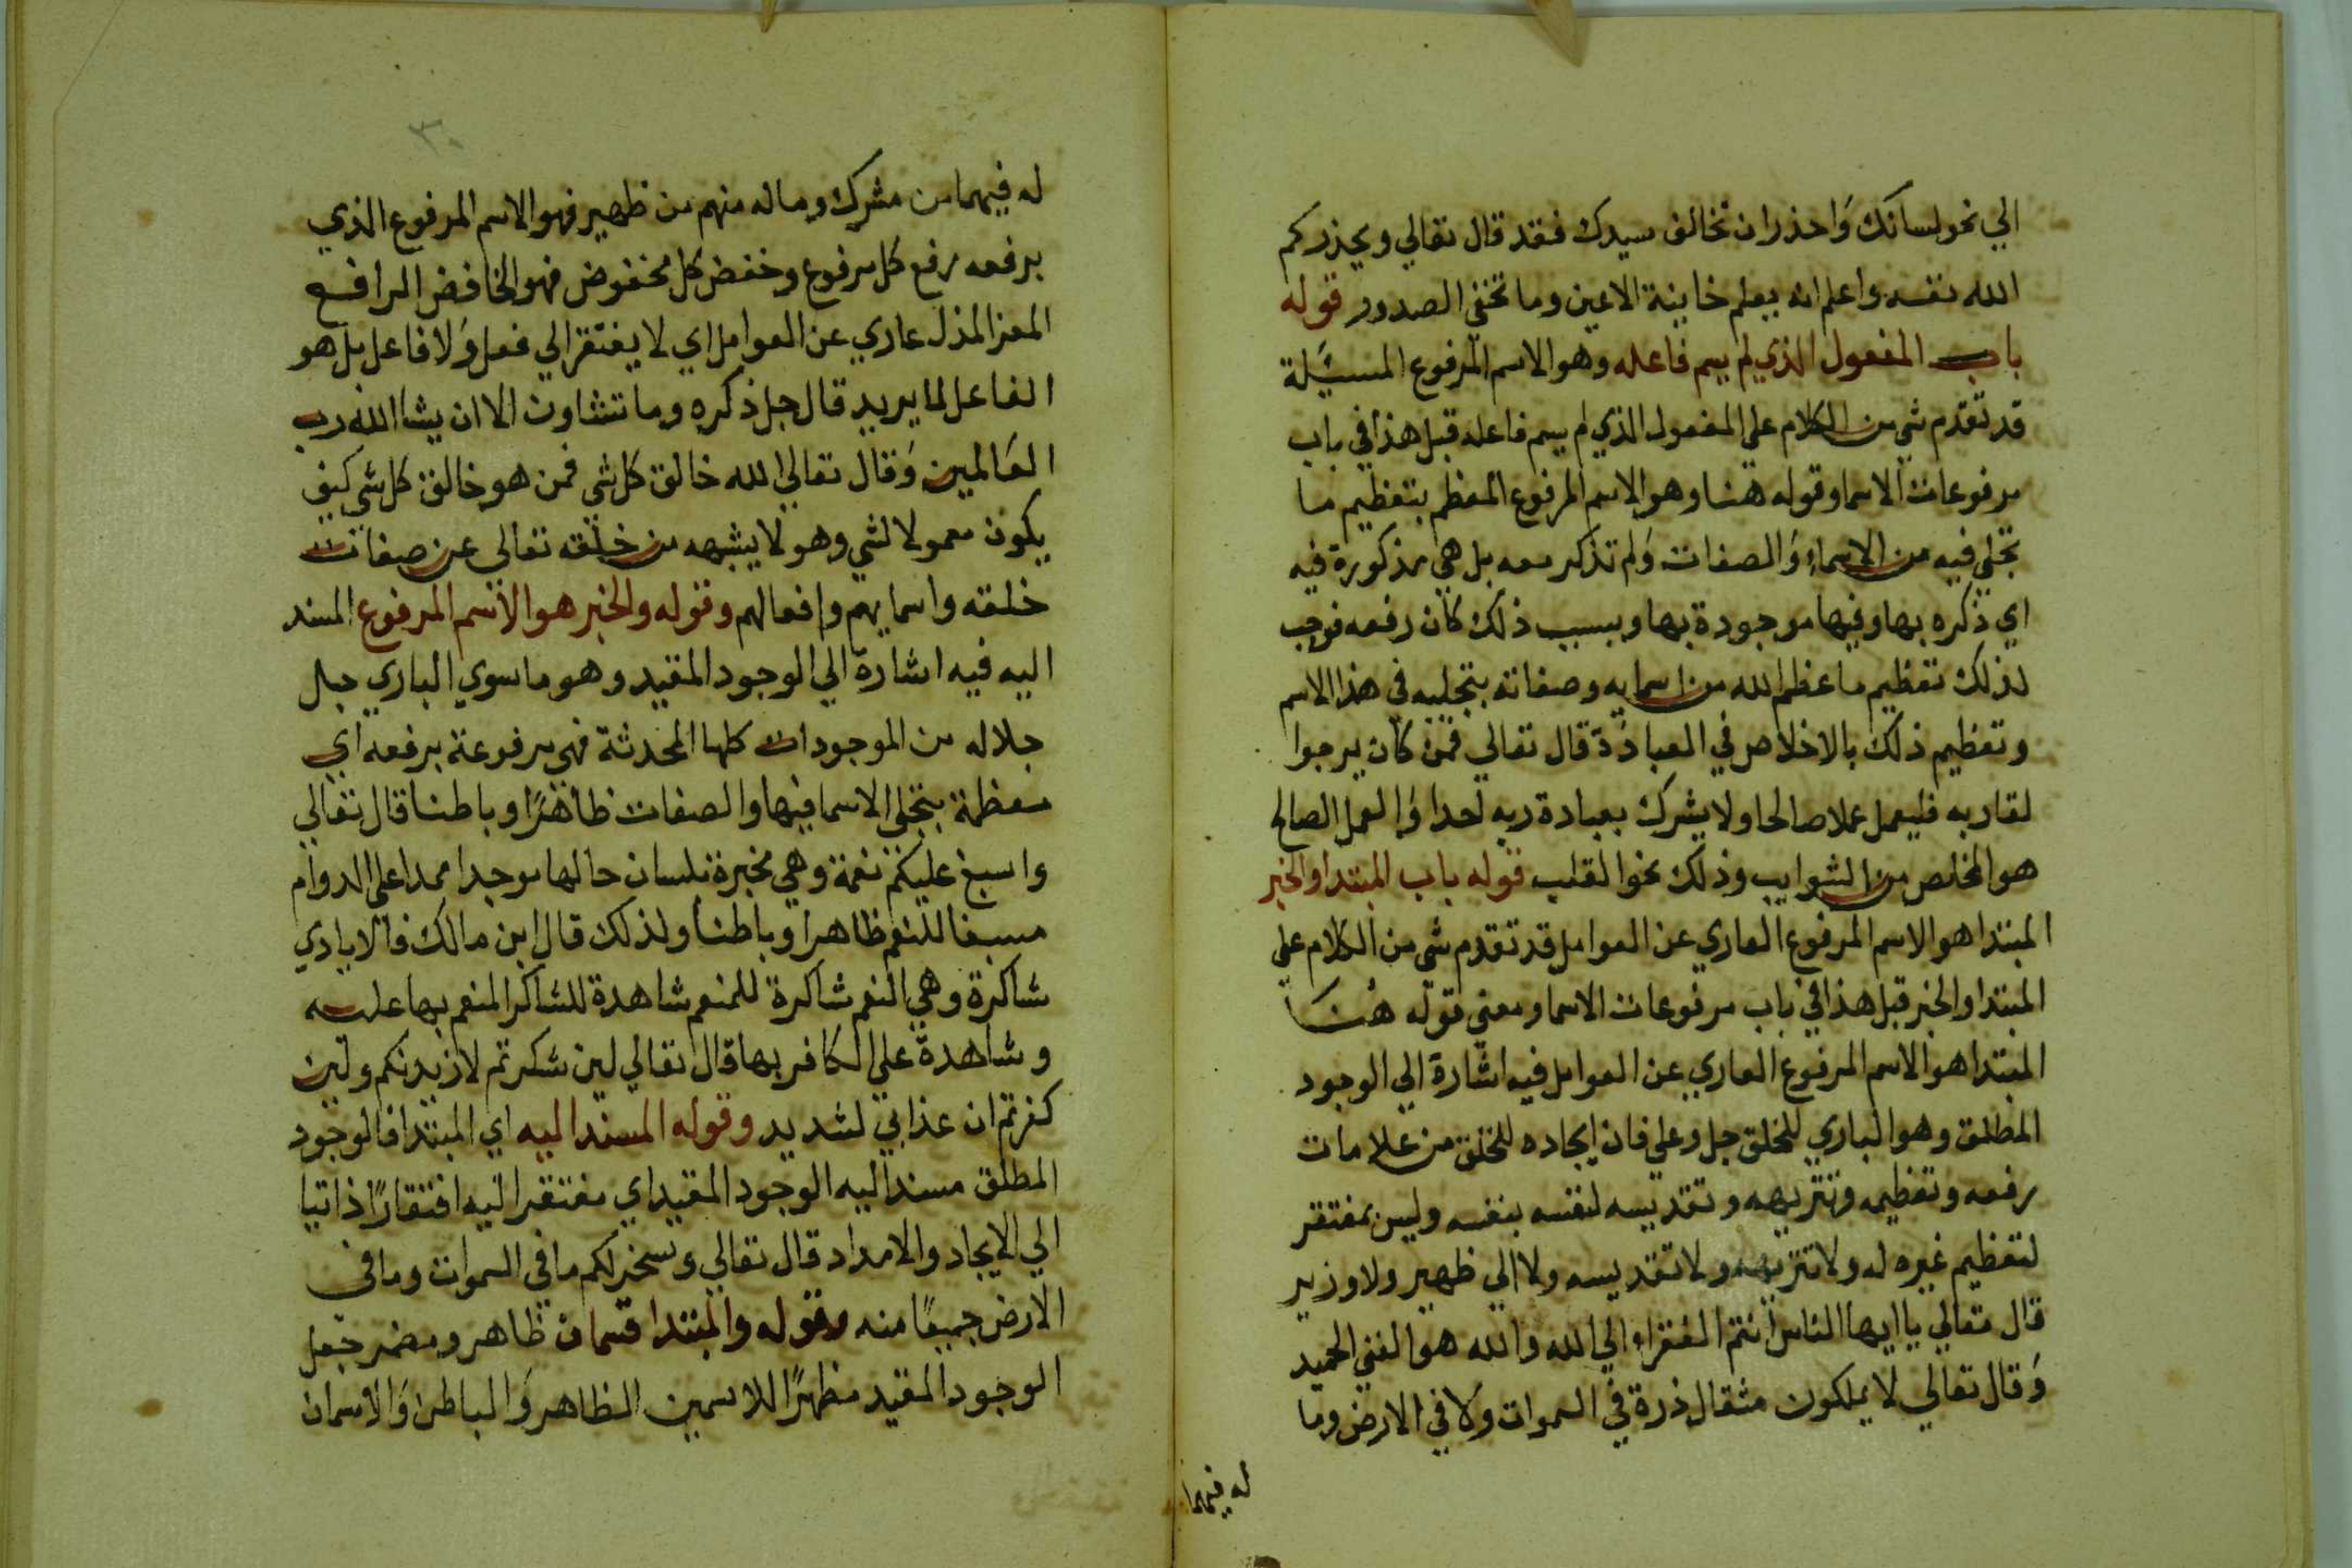 الي نحو لسانك وَاحذر ان تخالف سيدك فقد قال تعالي ويحذركم
الله نفسه واعلم انه يعلم خاينة الاعين وما تخفي الصدور قوله
باب المفعول الذي لم يسم فاعله وهو الاسم المرفوع المسيَلة
قد تقدم شي من الكلام علي المفعول الذي لم يسم فاعله قبل هذا في باب
مرفوعات الاسما وقوله هنا وهو الاسم المرفوع المعظم بتعظيم ما
تجلي فيه من الاسماء وَالصفات وَلم تذكر معه بل هي مذكورة فيه
اي ذكره بها وفيها موجودة بها وبسبب ذلك كان رفعه فوجب
لذلك تعظيم ما عظم الله من اسمايه وصفاته بتجليه في هذا الاسم
وتعظيم ذلك بالاخلاص في العبادَة قال تعالي فمن كان يرجوا
لقا ربه فليعمل عملا صالحا ولا يشرك بعبادة ربه احدا وَالعمل الصالح
هو المخلص من الشوايب وذلك نحو القلب قوله باب المبتدا والخبر
المبتدا هو الاسم المرفوع العاري عن العوامل قد تقدم شي من الكلام علي
المبتدا والخبر قبل هذا في باب مرفوعات الاسما ومعني قوله هنا
المبتدا هو الاسم المرفوع العاري عن العوامل فيه اشارة الي الوجود
المطلق وهو الباري للخلق جل وعلي فان ايجاده للخلق من علامات
رفعه وتعظيمه وتنزيهه وتقديسه لنفسه بنفسه وليس بمفتقر
لتعظيم غيره له ولا تنزيهه ولا تقديسه ولا الي ظهير ولا وزير
قال تعالي يا ايها الناس انتم الفقراء الي الله والله هو الغني الحميد
وَقال تعالي لا يملكون مثقال ذرة في السموات وَلا في الارض وما
له فيهما
٣٠
له فيهما من مشرك وما له منهم من ظهير فهو الاسم المرفوع الذي
برفعه رفع كل مرفوع وخفض كل مخفوض فهو الخافض الرافع
المعز المذل عاري عن العوامل اي لا يفتقر الي فعل وَلا فاعل بل هو
الفاعل لما يريد قال جل ذكره وما تشاون الا ان يشا الله رب
العَالمين وَقال تعالي الله خالق كل شي فمن هو خالق كل شي كيف
يكون معمولا لشي وهو لا يشبهه من خلقه تعالي عن صفات
خلقه واسمايهم وافعالهم وقوله والخبر هو الاسم المرفوع المسند
اليه فيه اشارة الي الوجود المقيد وهو ما سوي الباري جل
جلاله من الموجودات كلها المحدثة فهي مرفوعة برفعه اي
معظمة بتجلي الاسما فيها والصفات ظاهرًا وباطنا قال تعالي
واسبغ عليكم نعمة وهي مخبرة بلسان حالها موجدا ممدا علي الدوام
مسبغا للنعم ظاهرا وباطنا ولذلك قال ابن مالك فالايادي
شاكرة وهي النعم شاكرة للمنعم شاهدة للشاكر المنعم بها عليه
وشاهدة علي الكافر بها قال تعالي لين شكرتم لازيدنكم ولين
كفرتم ان عذابي لشديد وقوله المسند اليه اي المبتدا فالوجود
المطلق مسند اليه الوجود المقيد اي مفتقر اليه افتقارًا ذاتيا
الي الايجاد والامداد قال تعالي وسخر لكم ما في السموات وما في
الارض جميعًا منه وقوله والمبتدا قسمان ظاهر ومضمر جعل
الوجود المقيد مظهرًا للاسمين الظاهر وَالباطن وَالاسمان